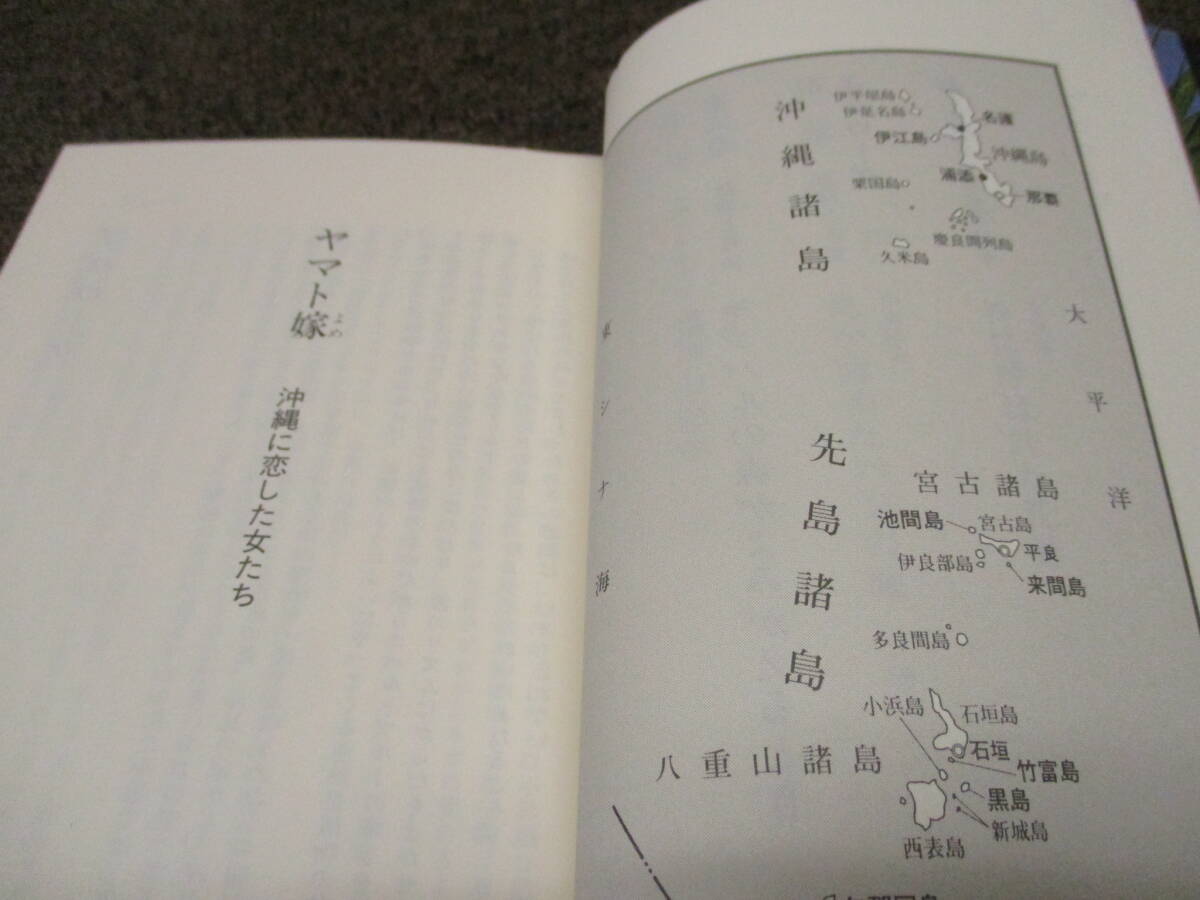 ヤマト嫁
よめ
沖縄に恋した女たち
沖縄諸島
伊平屋島
伊是名島
伊江島
名護
沖縄島
浦添
那覇
粟国島
慶良間列島
久米島
大平洋
東シナ海
先島諸島
宮古諸島
池間島
宮古島
平良
伊良部島
来間島
多良間島
小浜島
石垣島
石垣
竹富島
八重山諸島
黒島
新城島
西表島